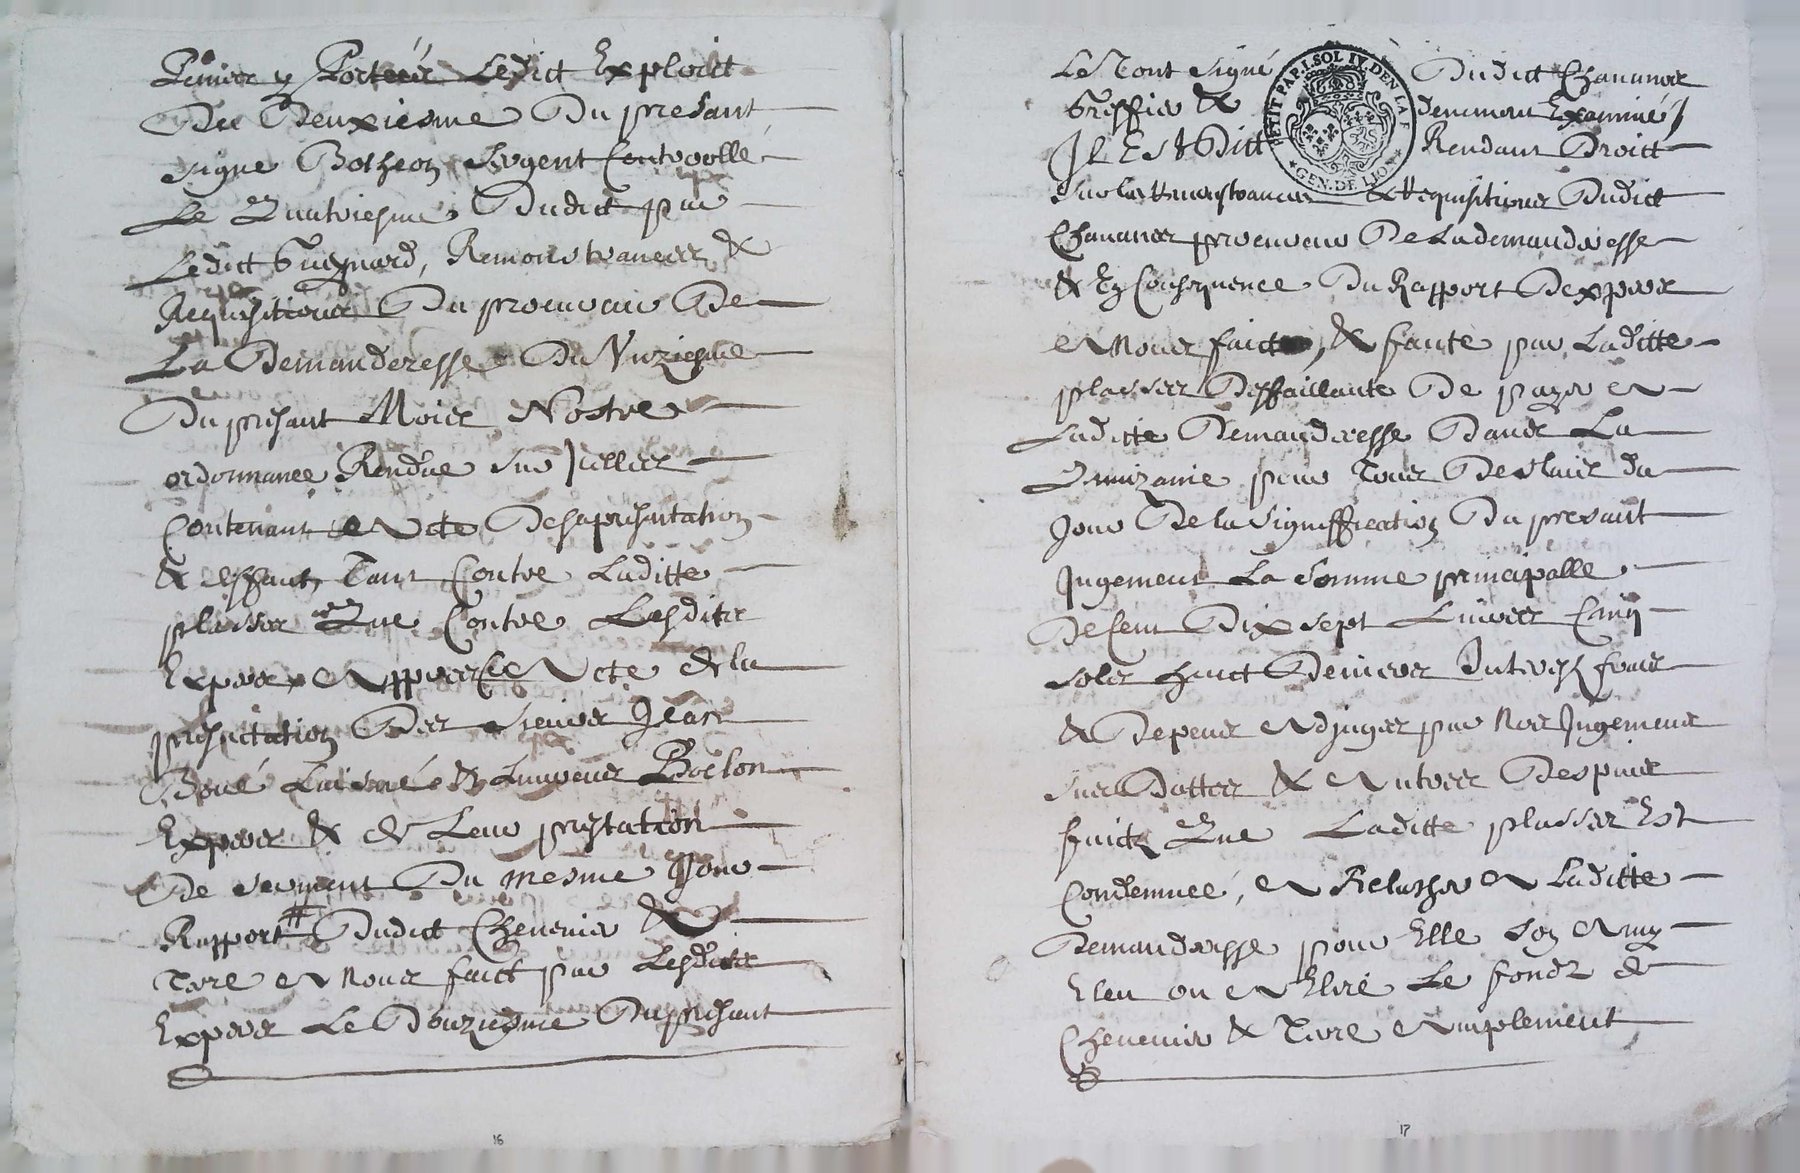 peines y porteés Ledict Exploict
Du Deuxiesme Du presant
signe Botheon sergent Controollé
Le Quatriesme Dudict par
Ledict Guynard, Remonstrances &
Requisitions Du procureur De
La Demanderesse Du Unziesme
Du presant Mois Nostre
ordonnance Rendue sur Icelles
Contenant Acte De sa presentation
& deffaut Tant Contre Laditte
plasses Que Contre Lesdits
Expers, Appres Acte de la
presentation Des sieurs Jean
Boué Laisné & Laurens Boelon
Expers & de Leur prestation
De serment Du mesme Jour
Rapport Dudict Chenevier &
Terre A Nous faict par Lesdicts
Expers Le Douziesme Du presant
Le Tout signé Dudict Chananes
Greffier & deuement Examiné
Il Est Dict Rendant Droict
sur les Remonstrances & Requisitions Dudict
Chananes procureur De La demanderesse
& En Consequence Du Rapport Dexpers
A Nous faict, & faute par Laditte
plasses Deffaillante De payer A
Laditte Demanderesse Dans La
Quinzaine pour Tous Delais du
Jour De la signiffication Du presant
Jugement La somme principalle
De Cent Dix sept Livres Cinq
sols huict Deniers Interestz frais
& Depens Adjuges par Nos Jugemens
sus Dattes & Autres Despuis
faicts Que Laditte plasses Est
Condemnée, A Relascher A Laditte
Demanderesse pour Elle son Amy
Eleu ou A Elire Le fondz de
Chenevier & Terre Amplement
PETIT PAP. 1. SOL IV. DEN LA F
GEN. DE LION
16
17